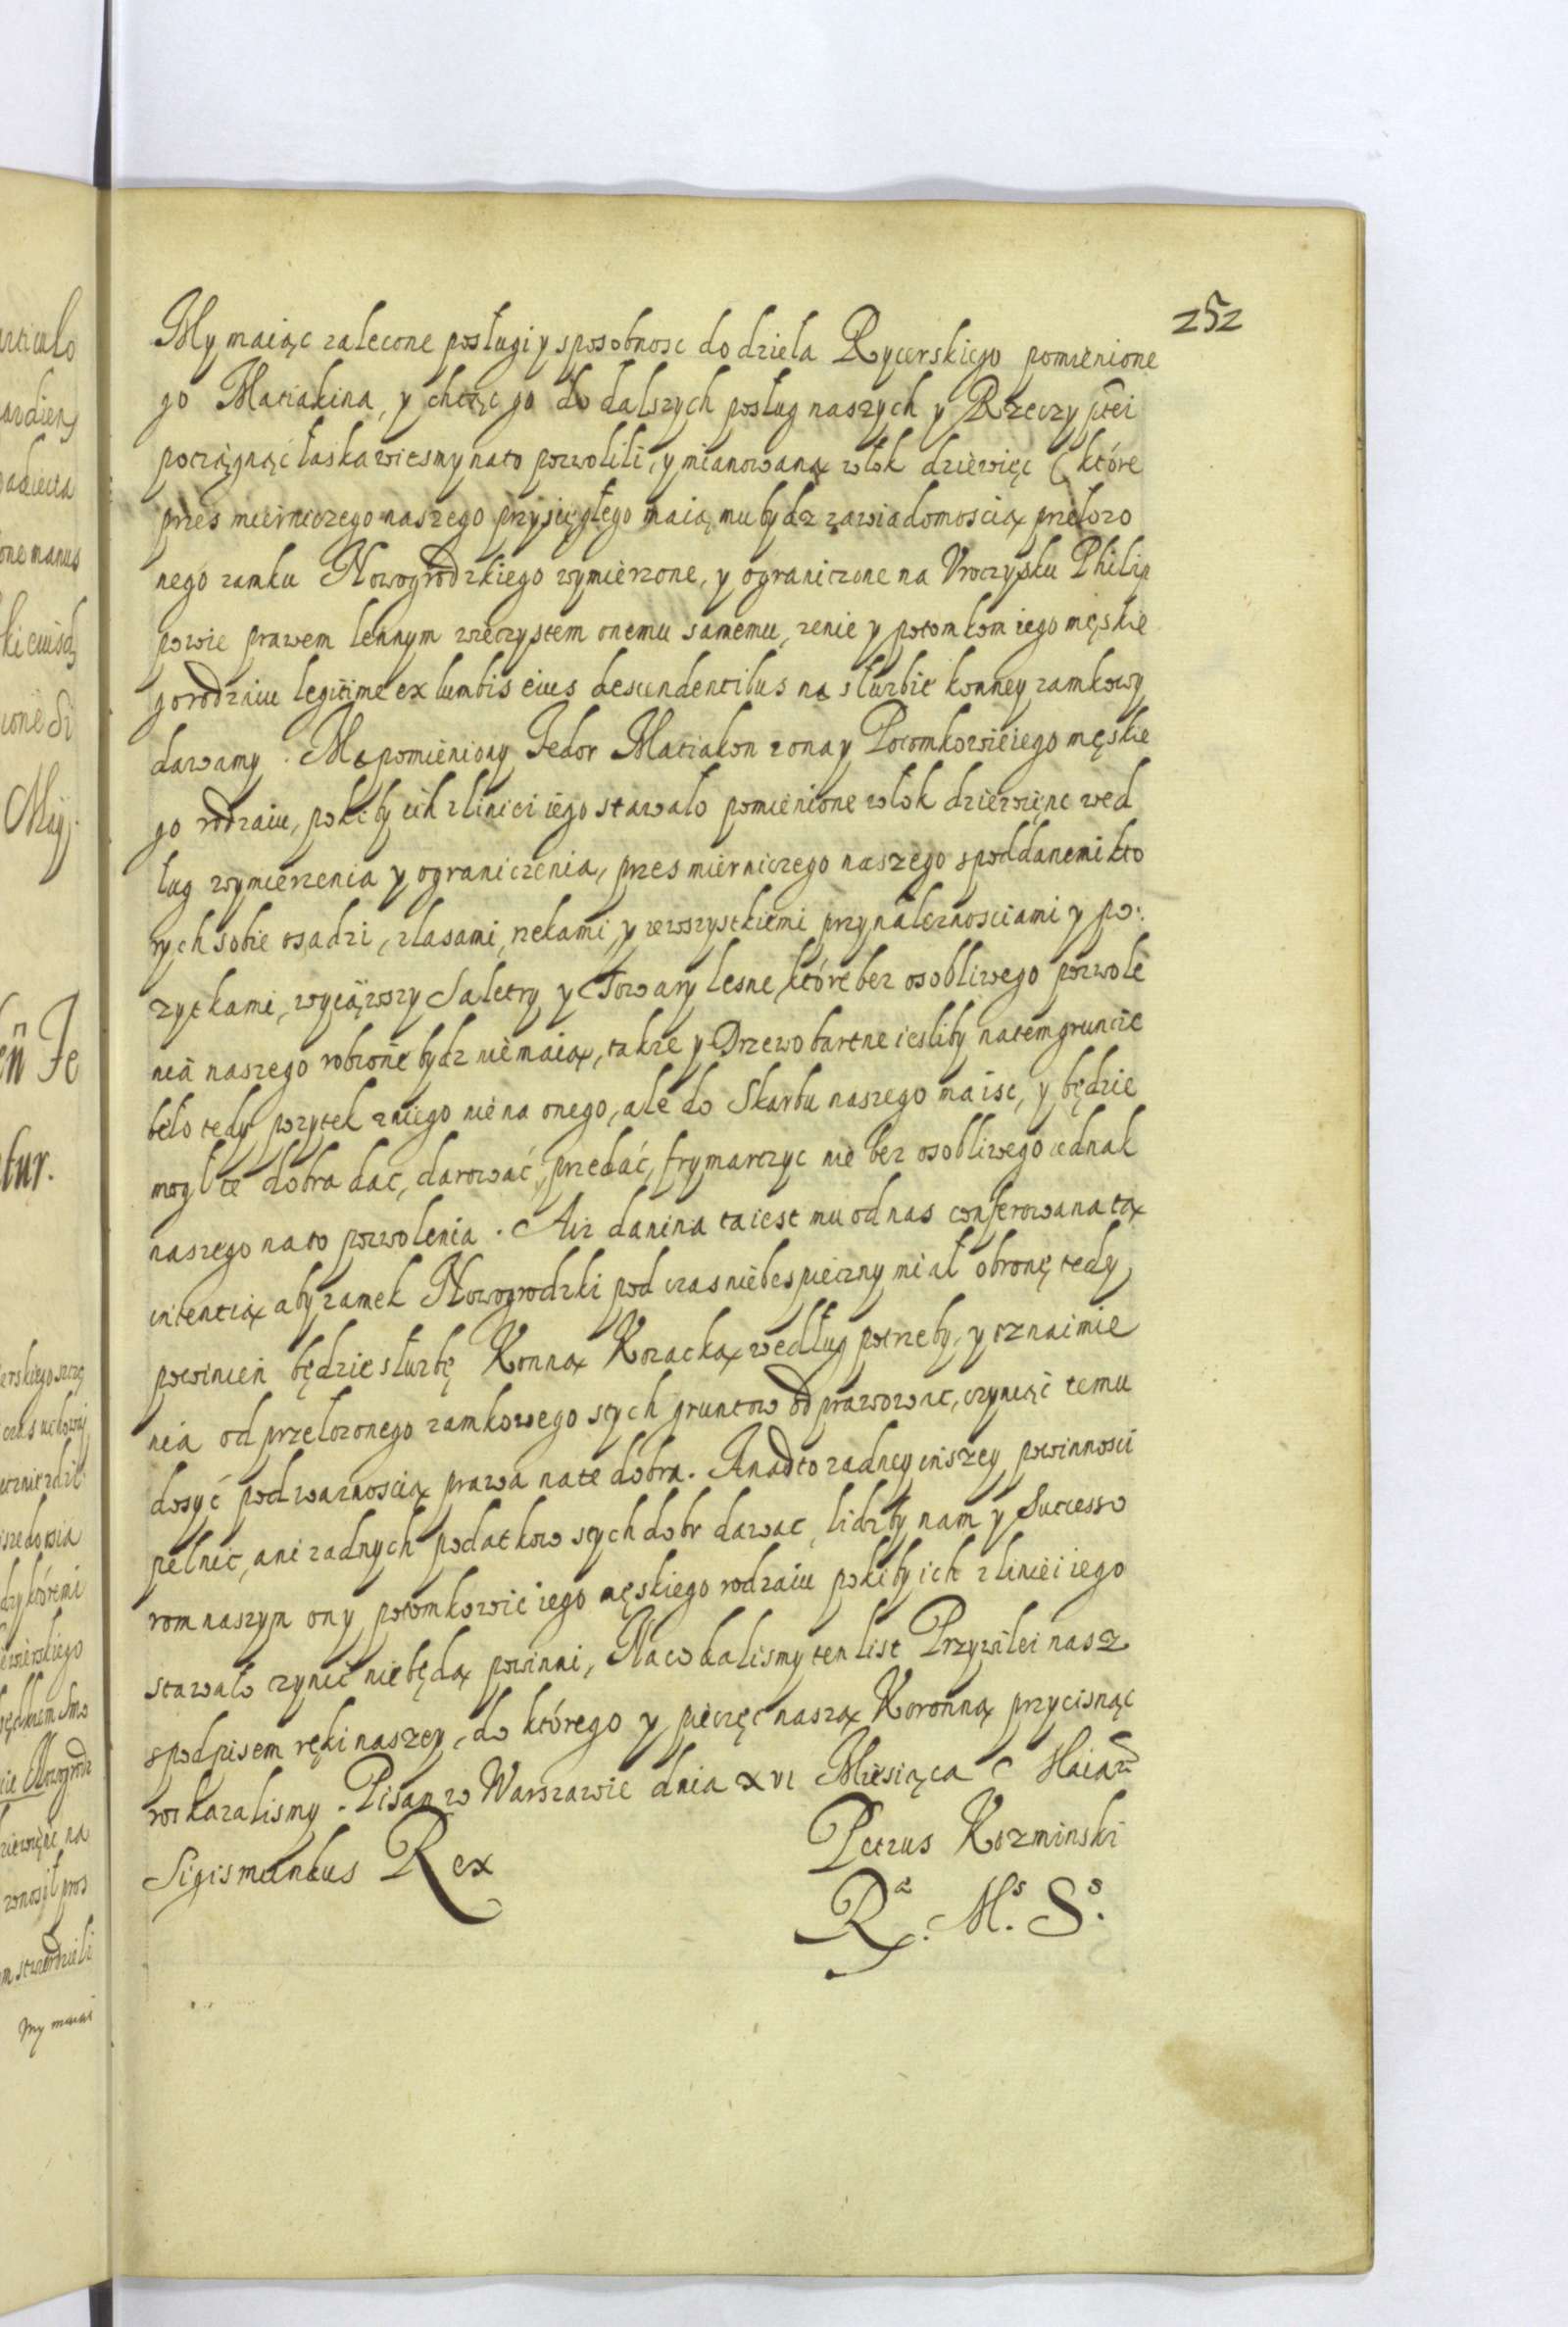 252
My maiąc zalecone posługi y sposobnosc do dzieła Rycerskiego pomienione
go Matiakina, y chcąc go do dalszych posług naszych y Rzeczyptei
pociągnąć łaskawiesmy nato pozwolili, y mianowaną włok dziewięć (które
przes mierniczego naszego przysięgłego maią mu bydz zawiadomoscią przełozo
nego zamku Nowogrodzkiego wymierzone, y ograniczone na Vroczysku Philip
powie prawem lennym wieczystem onemu samemu, zenie y potomkom iego męskie
go rodzaiu legitime ex lumbis eius descendentibus na słuzbie konney zamkowy
dawamy. Ma pomieniony Fedor Matiakon zona y Potomkowie iego męskie
go rodzaiu, pokiby ich zliniei iego stawało pomienione włok dziewięc wed
ług wymierzenia y ograniczenia, przes mierniczego naszego spoddanemi kto
rych sobie osadzi, zlasami, rzekami, y zewszystkiemi przynaleznosciami y po:
zytkami, wyiąwszy Saletry y Towary lesne, które bez osobliwego pozwole
nia naszego robione bydz nie maią, takze y Drzewo bartne iesliby natem gruncie
beło tedy pozytek zniego nie na onego, ale do Skarbu naszego ma isc, y będzie
mogł te dobra dac, darować, przedać, frymarczyc nie bez osobliwego iednak
naszego nato pozwolenia. Aiz danina ta iest mu od nas conferowana tą
intentią aby zamek Nowogrodzki pod czas niebespieczny miał obronę tedy
powinien będzie słuzbę Konną Kozacką według potrzeby, y oznaimie
nia od przełozonego zamkowego stych gruntow odprawowac, czyniąć temu
dosyć pod waznoscią prawa nate dobra. Anadto zadney inszey powinnosci
pełnic, ani zadnych podatkow stych dobr dawac, lidzby nam y Successo
rom naszym ony potomkowie iego męskiego rodzaiu pokiby ich zliniei iego
stawało czynic niebędą powinni, Naco dalismy ten list Przywilei nasz
spodpisem ręki naszey, do którego y pieczęc naszą Koronną przycisnąc
roskazalismy. Pisan w Warszawie dnia XVI Miesiąca Maia
Sigismundus Rex
Petrus Kozminski
R. M. S.